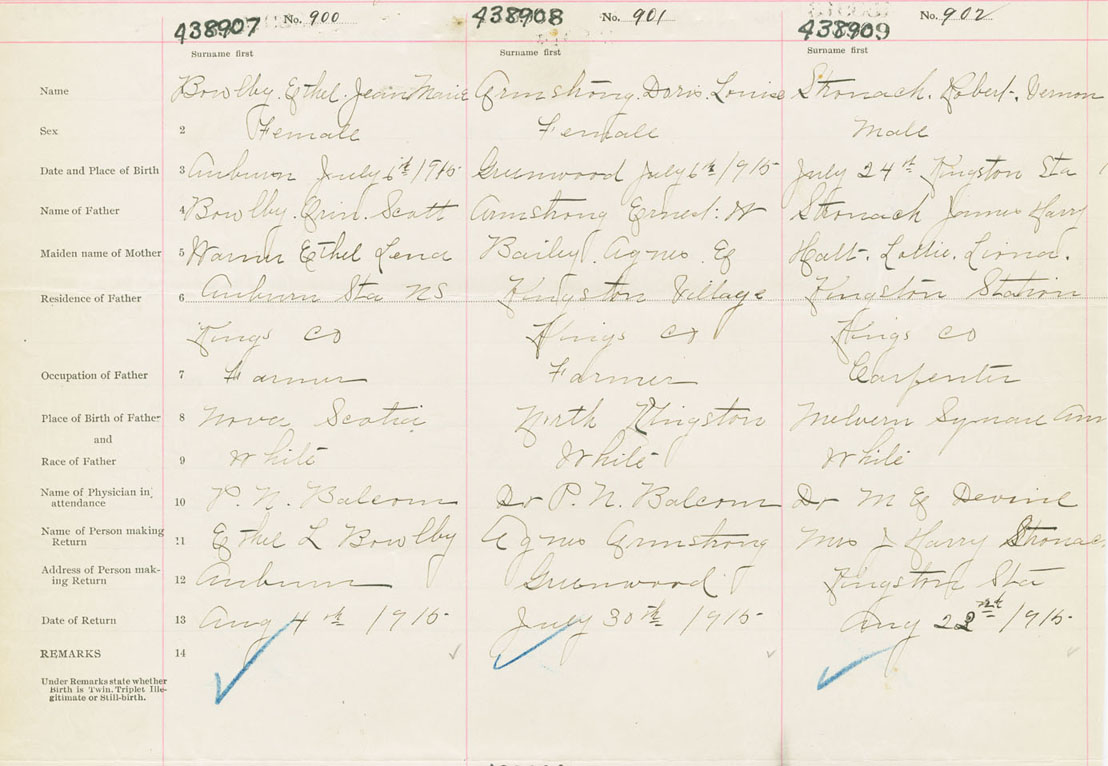 438907 No. 900 438908 No. 901 438909 No. 902
Surname first Surname first Surname first
Name Bowlby. Ethel. Jean Marie Armstrong. Doris. Louise Stronach. Robert. Vernon
Sex 2 Female Female Male
Date and Place of Birth 3 Auburn July 6th 1915 Greenwood July 6th 1915 July 24th Kingston Sta 1
Name of Father 4 Bowlby. Orin. Scott Armstrong Ernest. W Stronach James Harry
Maiden name of Mother 5 Ethel Lena Bailey. Agnes. E Lottie.
Residence of Father 6 Auburn Sta NS Kingston Village Kingston Station
Kings Co Kings Co Kings Co
Occupation of Father 7 Farmer Farmer Carpenter
Place of Birth of Father 8 Nova Scotia North Kingston Melvern Square Ann
and
Race of Father 9 White White White
Name of Physician in attendance 10 P. N. Balcom Dr P. N. Balcom Dr M E Devine
Name of Person making Return 11 Ethel L Bowlby Agnes Armstrong Mrs J Harry Stronac
Address of Person making Return 12 Auburn Greenwood Kingston Sta
Date of Return 13 Aug 4th 1915 July 30th 1915 Aug 1915
REMARKS 14
Under Remarks state whether
Birth is Twin, Triplet Ille-
gitimate or Still-birth.